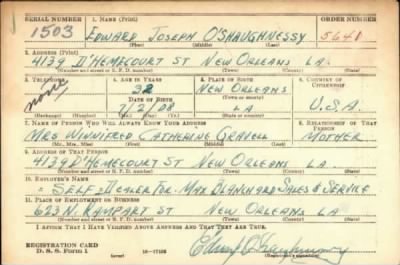 SERIAL NUMBER 1. NAME (Print) ORDER NUMBER
1503 EDWARD JOSEPH O'SHAUGHNESSY 5641
(First) (Middle) (Last)
2. ADDRESS (Print)
4139 D'HEMECOURT ST NEW ORLEANS LA.
(Number and street or R. F. D. number) (Town) (County) (State)
3. TELEPHONE 4. AGE IN YEARS 5. PLACE OF BIRTH 6. COUNTRY OF CITIZENSHIP
none 32 NEW ORLEANS
DATE OF BIRTH (Town or county)
7/21/08 LA U.S.A.
(Exchange) (Number) (Mo.) (Day) (Yr.) (State or country)
7. NAME OF PERSON WHO WILL ALWAYS KNOW YOUR ADDRESS 8. RELATIONSHIP OF THAT PERSON
MRS WINNIFRED CATHERINE GRAVELL MOTHER
(Mr., Mrs., Miss) (First) (Middle) (Last)
9. ADDRESS OF THAT PERSON
4139 D'HEMECOURT ST NEW ORLEANS LA
(Number and street or R. F. D. number) (Town) (County) (State)
10. EMPLOYER'S NAME
SELF = DEALER FOR MAX BLANCHARD SALES & SERVICE
11. PLACE OF EMPLOYMENT OR BUSINESS
623 N. RAMPART ST NEW ORLEANS LA
(Number and street or R. F. D. number) (Town) (County) (State)
I AFFIRM THAT I HAVE VERIFIED ABOVE ANSWERS AND THAT THEY ARE TRUE.
REGISTRATION CARD
D. S. S. Form 1 (over) 16—17105